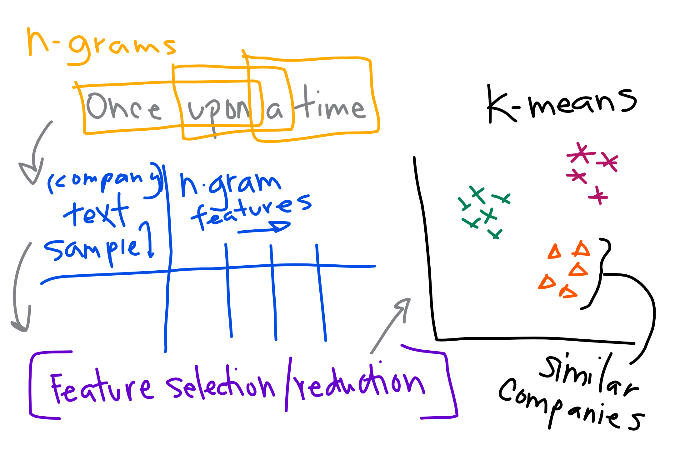 n-grams
Once upon a time
(company)
text
sample
n-gram
features
Feature selection/reduction
K-means
similar
companies